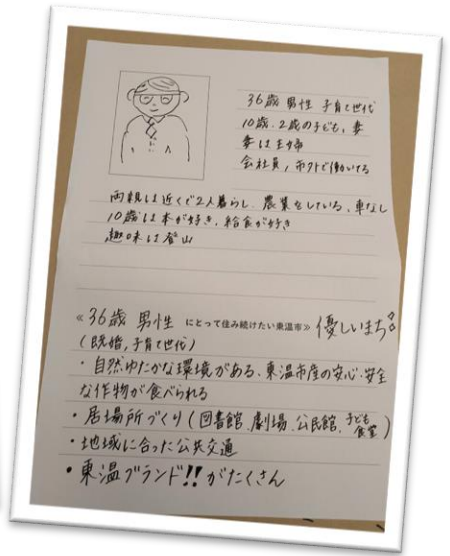 36歳 男性 子育て世代
10歳、2歳の子ども、妻
妻は主婦
会社員、市外で働いてる
両親は近くで2人暮らし、農業をしている、車なし
10歳は本が好き、給食が好き
趣味は登山
≪36歳 男性 にとって住み続けたい東温市≫ 優しいまち
(既婚、子育て世代)
・自然ゆたかな環境がある、東温市産の安心・安全
な作物が食べられる
・居場所づくり(図書館、劇場、公民館、子ども食堂)
・地域に合った公共交通
・東温ブランド!!がたくさん